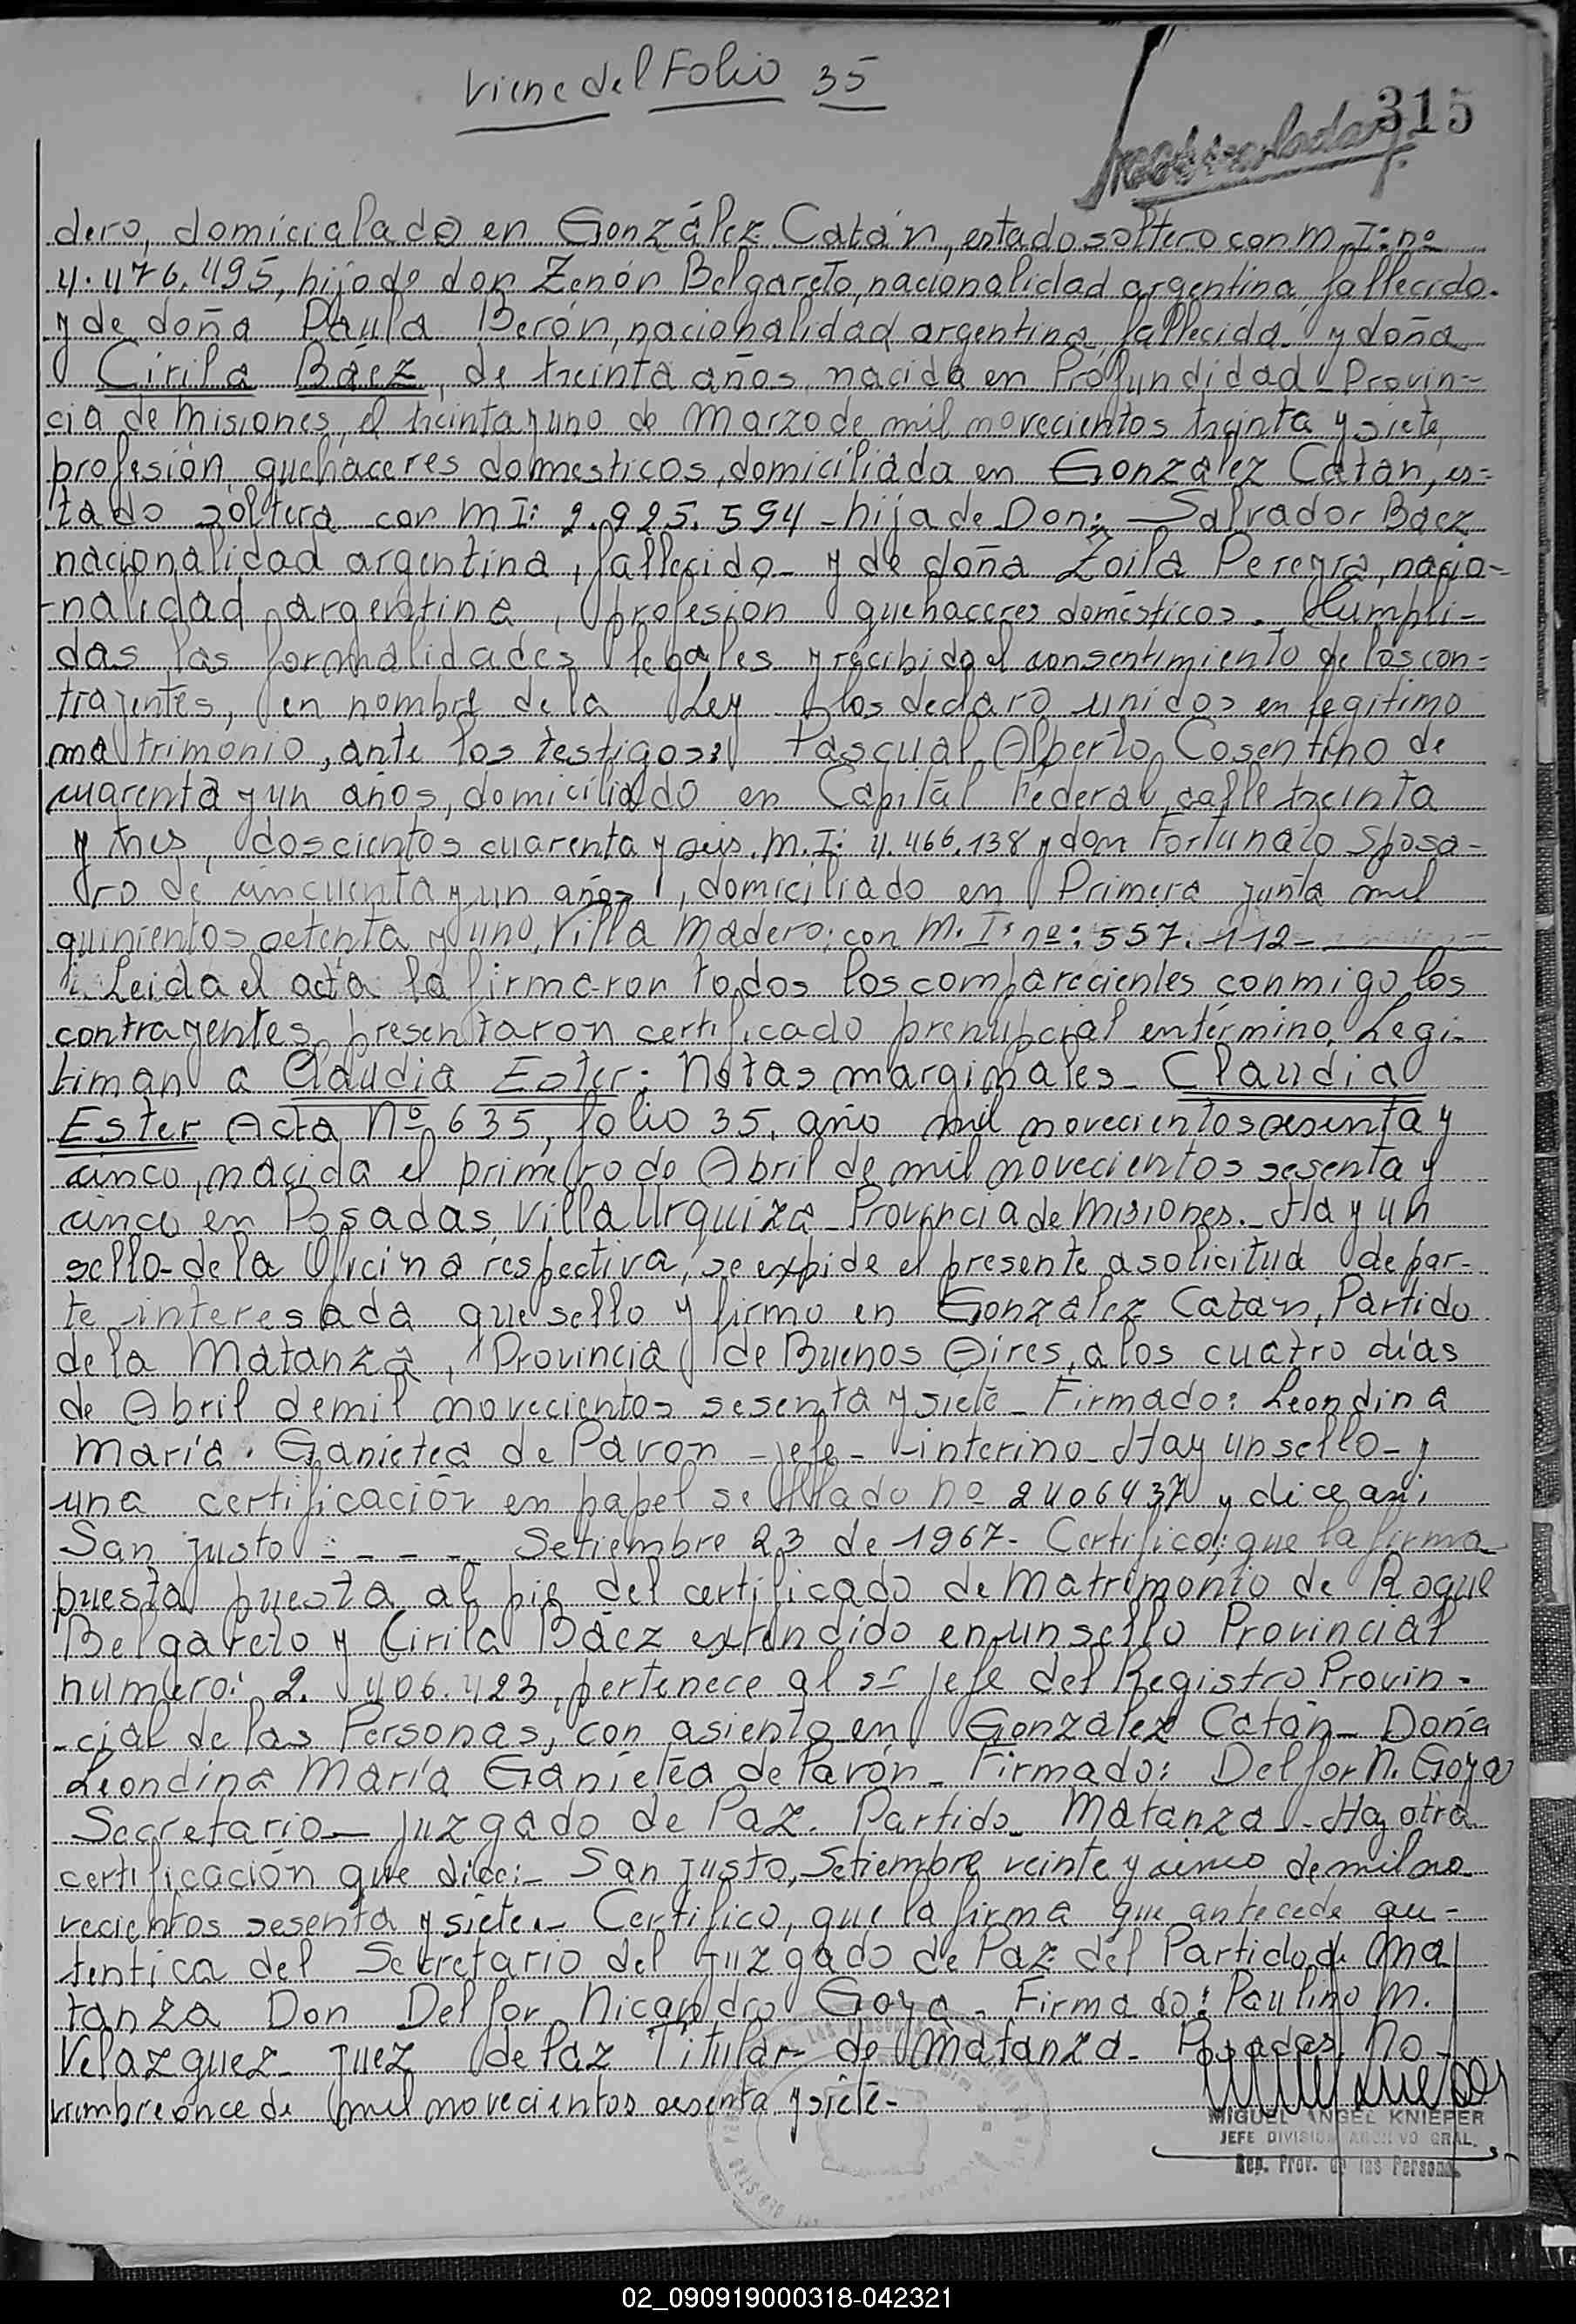 Viene del Folio 35
315
dero, domicialado en González Catán, estado soltero con M.I: nº
4.476.495, hijo de don Zenón Belgareto, nacionalidad argentina, fallecido.
y de doña Paula Berón, nacionalidad argentina, fallecida y doña
Cirila Báez, de treinta años, nacida en Profundidad Provin-
cia de Misiones, el treinta y uno de Marzo de mil novecientos treinta y siete,
profesión quehaceres domesticos, domiciliada en González Catan, es-
tado soltera con MI: 2.925.594 - hija de Don: Salvador Baez
nacionalidad argentina, fallecido - y de doña Zoila Pereyra, nacio-
-nalidad argentina, profesión quehaceres domésticos. Cumpli-
das las formalidades legales y recibido el consentimiento de los con-
trayentes, en nombre de la Ley los declaro unidos en legitimo
matrimonio, ante los testigos: Pascual Alberto Cosentino de
cuarenta y un años, domiciliado en Capital Federal, calle treinta
y tres, doscientos cuarenta y seis. M.I: 4.466.138 y don Fortunato Sposa-
ro de cincuenta y un años, domiciliado en Primera Junta mil
quinientos setenta y uno, Villa Madero, con M.I: nº: 557.112-
Leida el acta la firmaron todos los comparecientes conmigo los
contrayentes presentaron certificado prenupcial en término. Legi-
timan a Claudia Ester: Notas marginales - Claudia
Ester Acta Nº 635, folio 35, año mil novecientos sesenta y
cinco, nacida el primero de Abril de mil novecientos sesenta y
cinco en Posadas, Villa Urquiza - Provincia de Misiones. - Hay un
sello - de la Oficina respectiva, se expide el presente a solicitud de par-
te interesada que sello y firmo en González Catán, Partido
de la Matanza, Provincia de Buenos Aires, a los cuatro días
de Abril de mil novecientos sesenta y siete - Firmado: Leondina
María. Ganietea de Pavon - jefe - interino - Hay un sello - y
una certificación en papel sellado nº 2406437 y dice asi;
San Justo - - - - Setiembre 23 de 1967 - Certifico; que la firma
puesta puesta al pie del certificado de Matrimonio de Roque
Belgareto y Cirila Báez extendido en un sello Provincial
numero: 2.406.423, pertenece al sr jefe del Registro Provin-
-cial de las Personas, con asiento en González Catán - Doña
Leondina María Ganietéa de Pavón - Firmado: Delfor N. Goya
Secretario - Juzgado de Paz. Partido - Matanza - Hay otra
certificación que dice: - San Justo, Setiembre veinte y cinco de mil no-
vecientos sesenta y siete. - Certifico, que la firma que antecede au-
tentica del Secretario del Juzgado de Paz del Partido de Ma
tanza Don Delfor Nicandro Goya - Firmado: Paulino M.
Velazquez - Juez de Paz Titular de Matanza - Posadas, No-
viembre once de mil novecientos sesenta y siete -
MIGUEL ANGEL KNIEFER
JEFE DIVISION ARCHIVO GRAL.
Rep. Prov. de las Personas
02_090919000318-042321